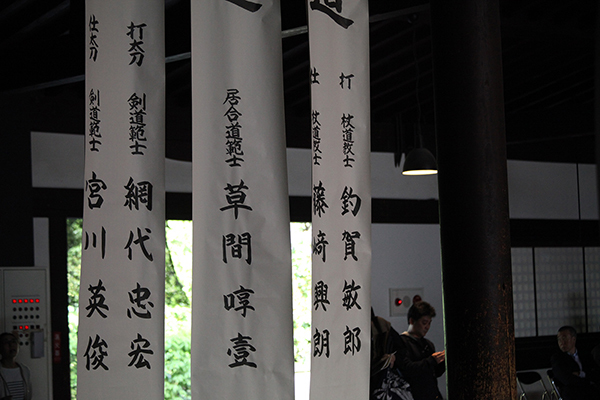 打 杖道教士 釣賀敏郎
仕 杖道教士 藤崎興朗
居合道範士 草間惇壹
打太刀 剣道範士 網代忠宏
仕太刀 剣道範士 宮川英俊